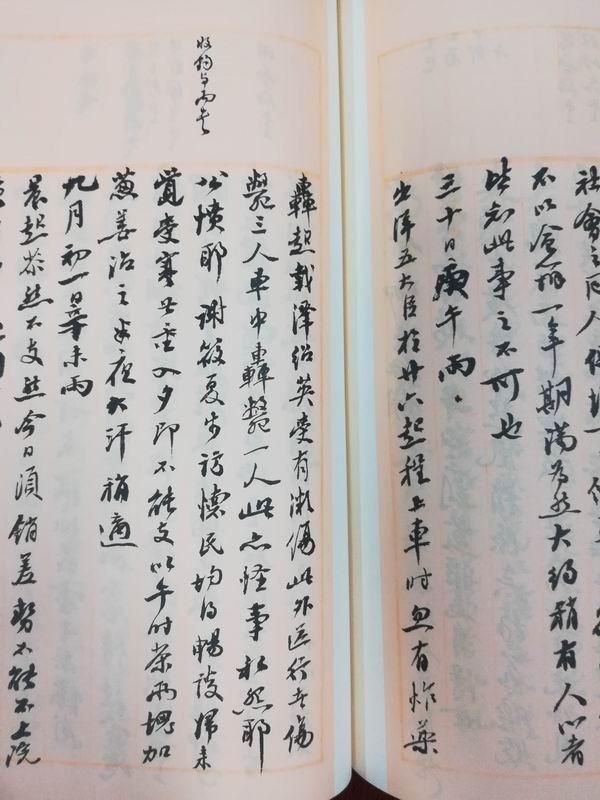 社會之同人
不以合辦一年期滿為然大約稍有人心者
皆知此事之不可也
三十日庚午雨
出洋五大臣於廿六起程上車時忽有炸藥
轟起載澤紹英受有微傷此外送行者傷
斃三人車中轟斃一人此亦怪事私怨耶
公憤耶謝筱夏生訪懷民均得暢談歸來
覺受寒甚重入夕即不能支以午時茶兩塊加
蔥姜治之半夜大汗稍適
九月初一日辛未雨
晨起苶然不支然今日須銷差勢不能不上院